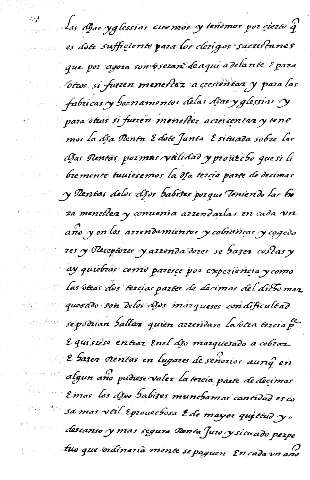 las dhas yglessias creemos y tenemos por cierto q̃
es dote sufficiente para los clerigos sacristanes
que por agora son y seran de aqui adelante E para
otros si fueren menester acrecentar y para las
fabricas y hornamentos delas dhas yglesias y
para otros si fueren menester acrecentar y tene
mos la dha Renta E dote Junta E situada sobre las
dhas Rentas por mas vtilidad y prouecho que si li
bremente tuuiesemos la dha tercia parte de decimas
y Rentas delos dhos habises porque teniendo las ho
ra menester y convenia arrendarlas en cada vn
año y en los arrendamientos y cobranças y cogedo
res y Receptores y arrendadores se hazen costas y
ay quiebras como paresce por experiencia y como
las otras dos tercias partes de decimas del dicho mar
quesado son delos dhos marqueses con dificultad
se podrian hallar quien arrendase la otra tercia pte
E quisiese entrar En el dho marquesado a cobrar
E hazer Rentas en lugares de señorios aunq̃ en
algun año pudiese valer la tercia parte de decimas
E mas los dhos habises mucha mas cantidad es co
sa mas vtil E prouechosa E de mayor quietud y
descanso y mas segura Renta Juro y situado perpe
tuo que ordinaria mente se paguen En cada vn año